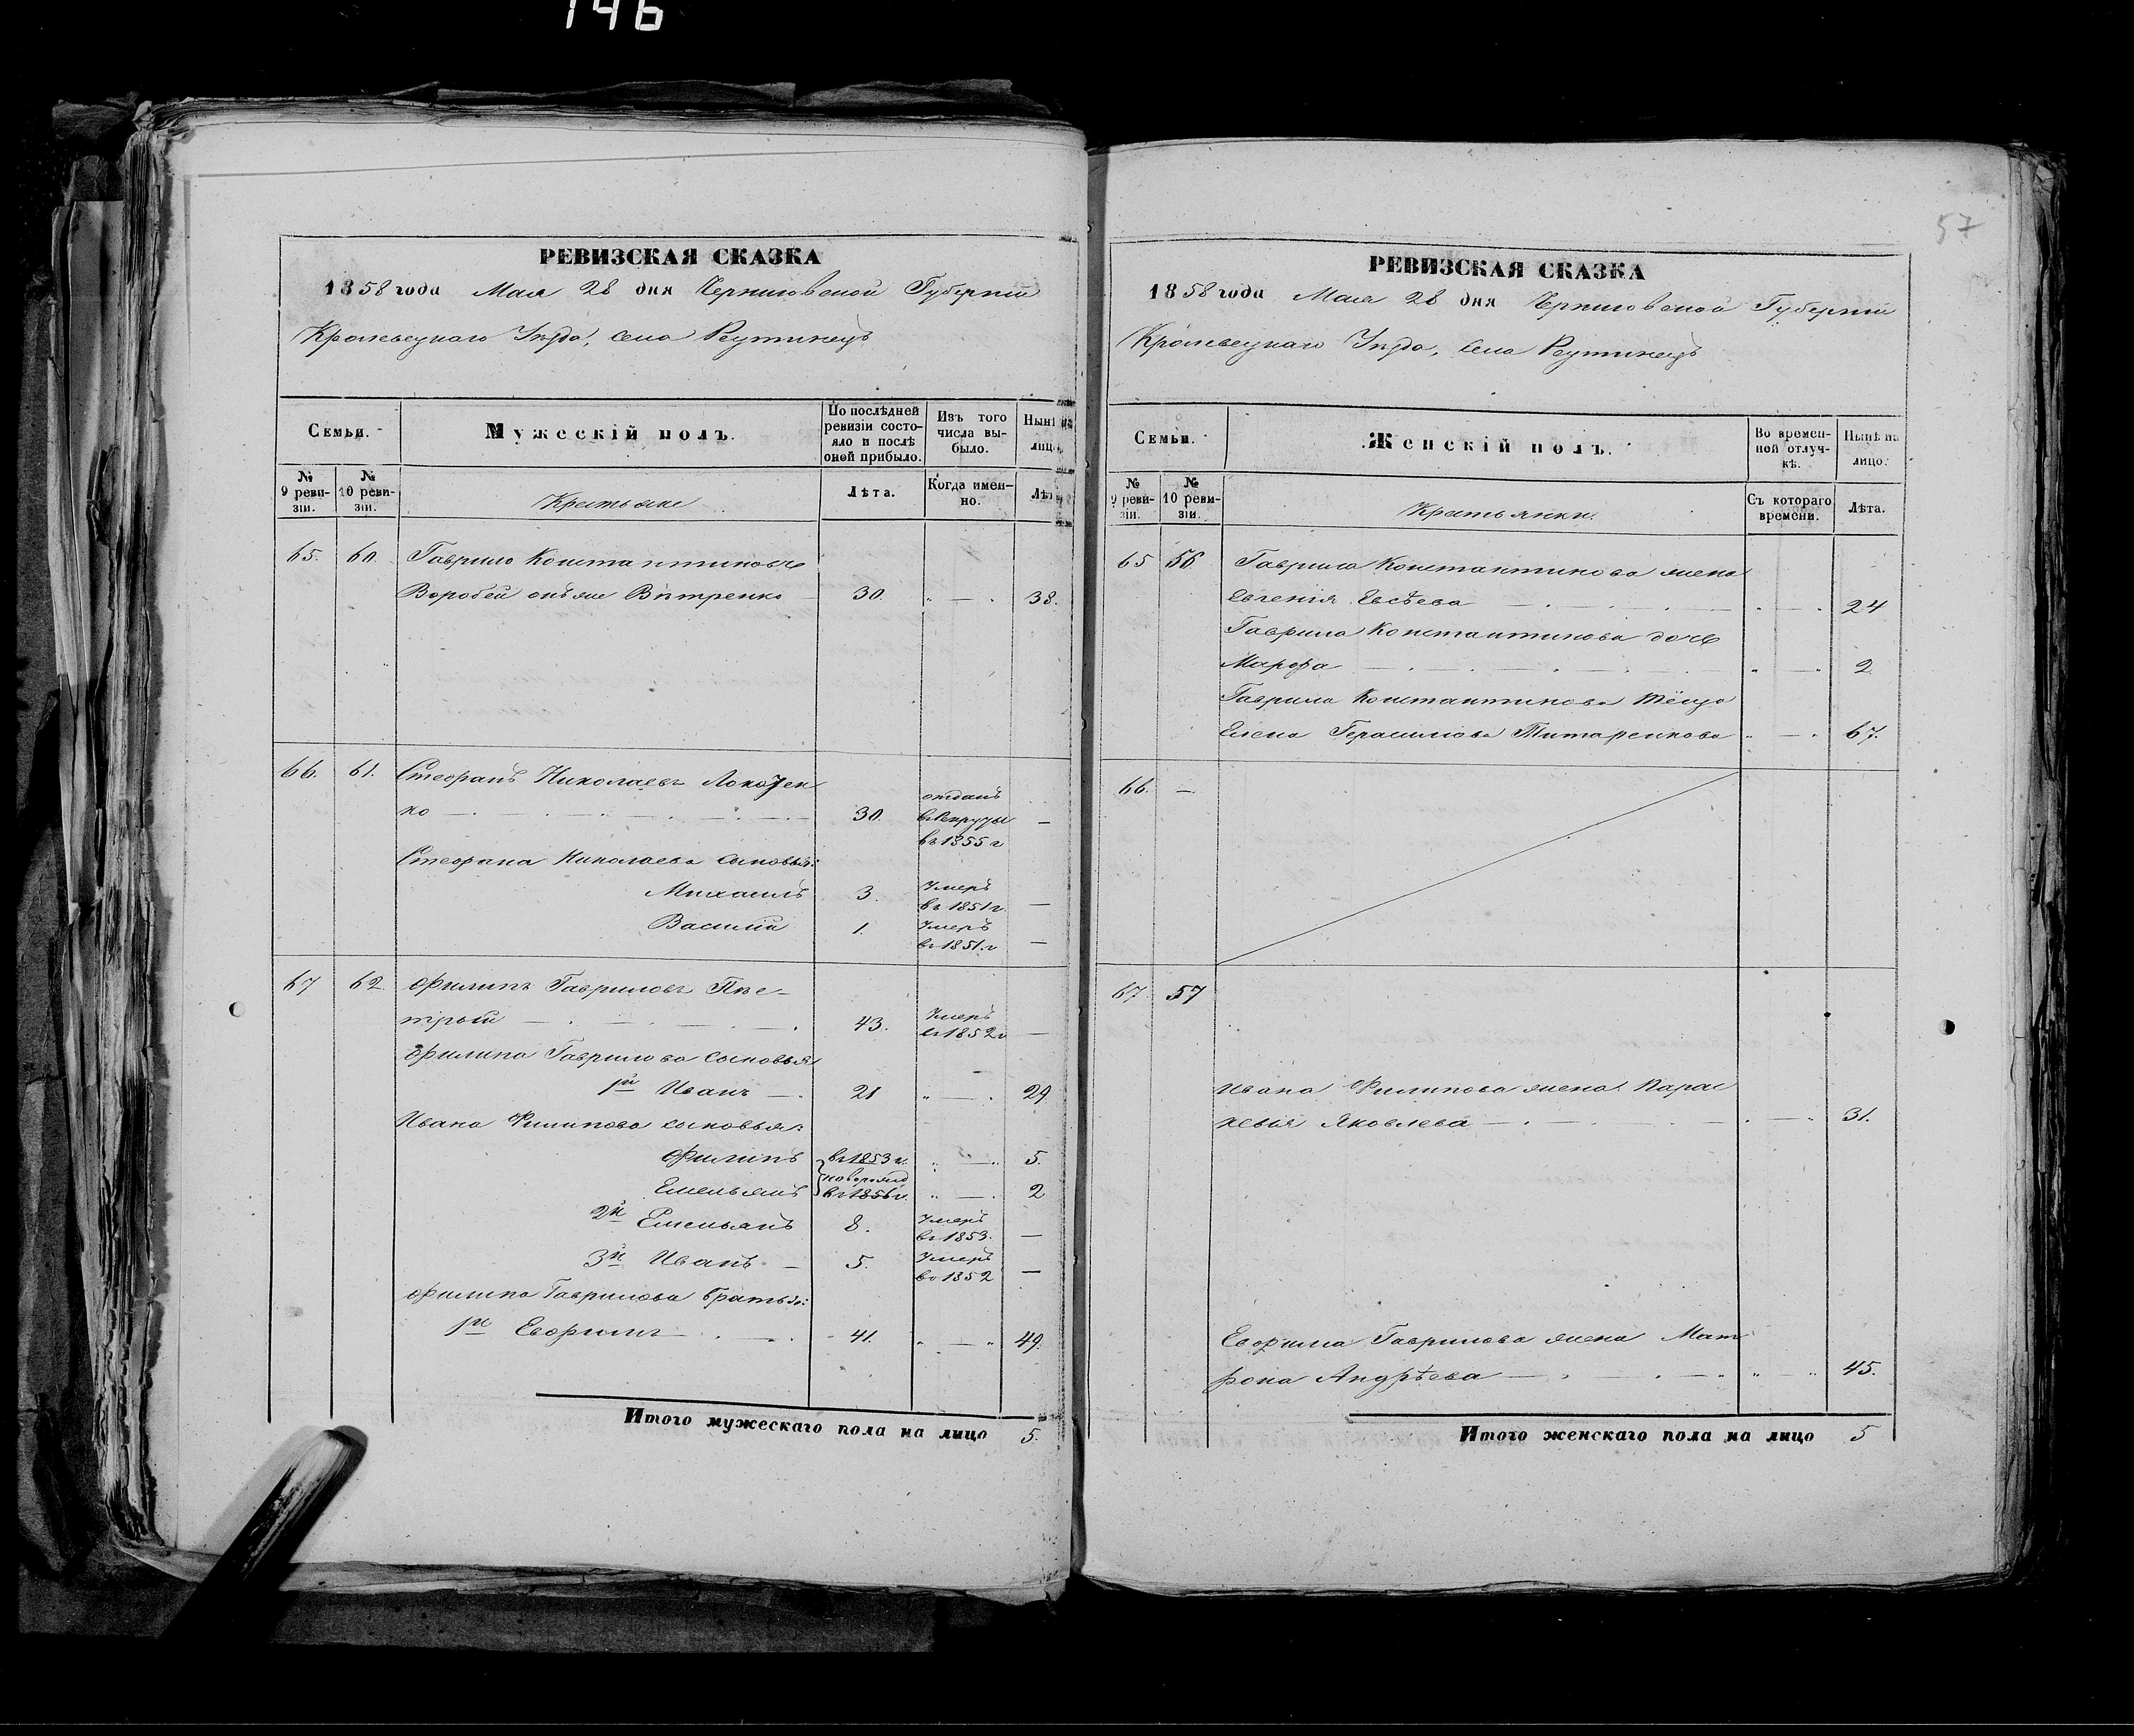 146
РЕВИЗСКАЯ СКАЗКА
1858 года Мая 28 дня Черниговской Губерніи
Кролевецкаго Уѣзда, села Реутинецъ
Семьи.
Мужескій полъ.
По послѣдней ревизіи состояло и послѣ оной прибыло.
Изъ того числа выбыло.
Нынѣ на лицо
№ 9 ревизіи.
№ 10 ревизіи.
Крестьяне
Лѣта.
Когда именно.
Лѣт
65. 60. Гаврило Константиновъ
Воробей онъ же Вѣтренко 30. 38.
66. 61. Стефанъ Николаевъ
ко 30. отданъ в рекруты въ 1855 г —
Стефана Николаева сыновья:
Михаилъ 3. Умеръ въ 1851 г. —
Василій 1. Умеръ въ 1851 г —
67 62. Филипъ Гавриловъ Пѣс-
трый 43. Умеръ въ 1852 г —
Филипа Гаврилова сыновья
1й Иванъ 21 29
Ивана Филипова сыновья:
Филипъ въ 1853 г. 5.
новорожд
Емельянъ въ 1856 г. 2
2й Емельянъ 8. Умеръ въ 1853. —
3й Иванъ 5. Умеръ въ 1852 —
Филипа Гаврилова братья:
1й Ефимъ 41. 49.
Итого мужескаго пола на лицо 5.
57
РЕВИЗСКАЯ СКАЗКА
1858 года Мая 28 дня Черниговской Губерніи
Кролевецкаго Уѣзда, села Реутинецъ
Семьи.
Женскій полъ.
Во временной отлучкѣ.
Нынѣ на лицо.
№ 9 ревизіи.
№ 10 ревизіи.
Крестьянки.
Съ котораго времени.
Лѣта.
65 56 Гаврила Константинова жена
Евгенія Евсѣева 24
Гаврила Константинова дочь
Марфа 2
Гаврила Константинова тёща
Елена Герасимова Титаренкова 67.
66. —
67. 57
Ивана Филипова жена Парас
кевья Яковлева 31.
Ефима Гаврилова жена Мат
рона Андрѣева 45.
Итого женскаго пола на лицо 5